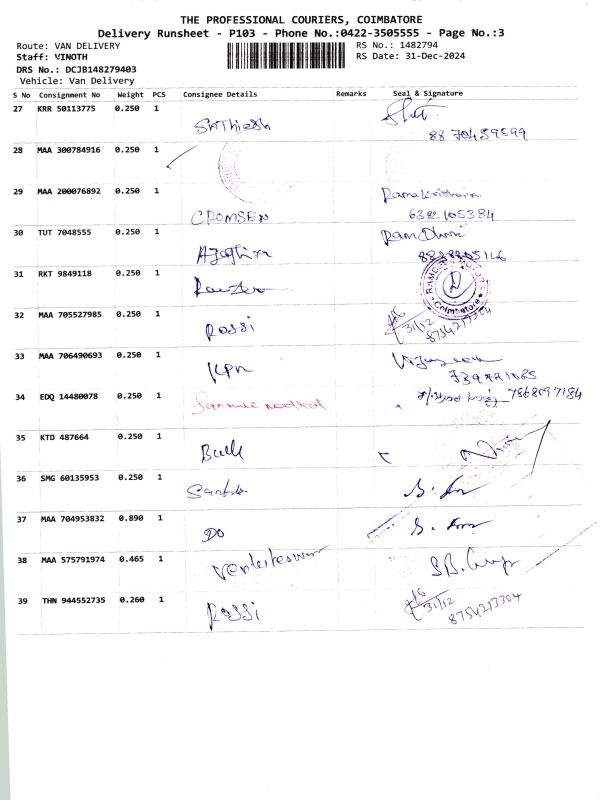 THE PROFESSIONAL COURIERS, COIMBATORE
Delivery Runsheet - P103 - Phone No.:0422-3505555 - Page No.:3
Route: VAN DELIVERY RS No.: 1482794
Staff: VINOTH RS Date: 31-Dec-2024
DRS No.: DCJB148279403
Vehicle: Van Delivery
S No Consignment No Weight PCS Consignee Details Remarks Seal & Signature
27 KRR 50113775 0.250 1
SHThiesh
88 70459599
28 MAA 300784916 0.250 1
29 MAA 200076892 0.250 1 Ramakrishnan
CROMSEN 6382105384
30 TUT 7048555 0.250 1 Ram Dhoni
31 RKT 9849118 0.250 1
Coimbatore
32 MAA 705527985 0.250 1
Rossi 31/12
8754273304
33 MAA 706490693 0.250 1
KPN
34 EDQ 14480078 0.250 1 7868097184
medical
35 KTD 487664 0.250 1
Bull
36 SMG 60135953 0.250 1
37 MAA 704953832 0.890 1
DO
38 MAA 575791974 0.465 1
Venkateswar
39 THN 944552735 0.260 1
Rossi 31/12
8754273304